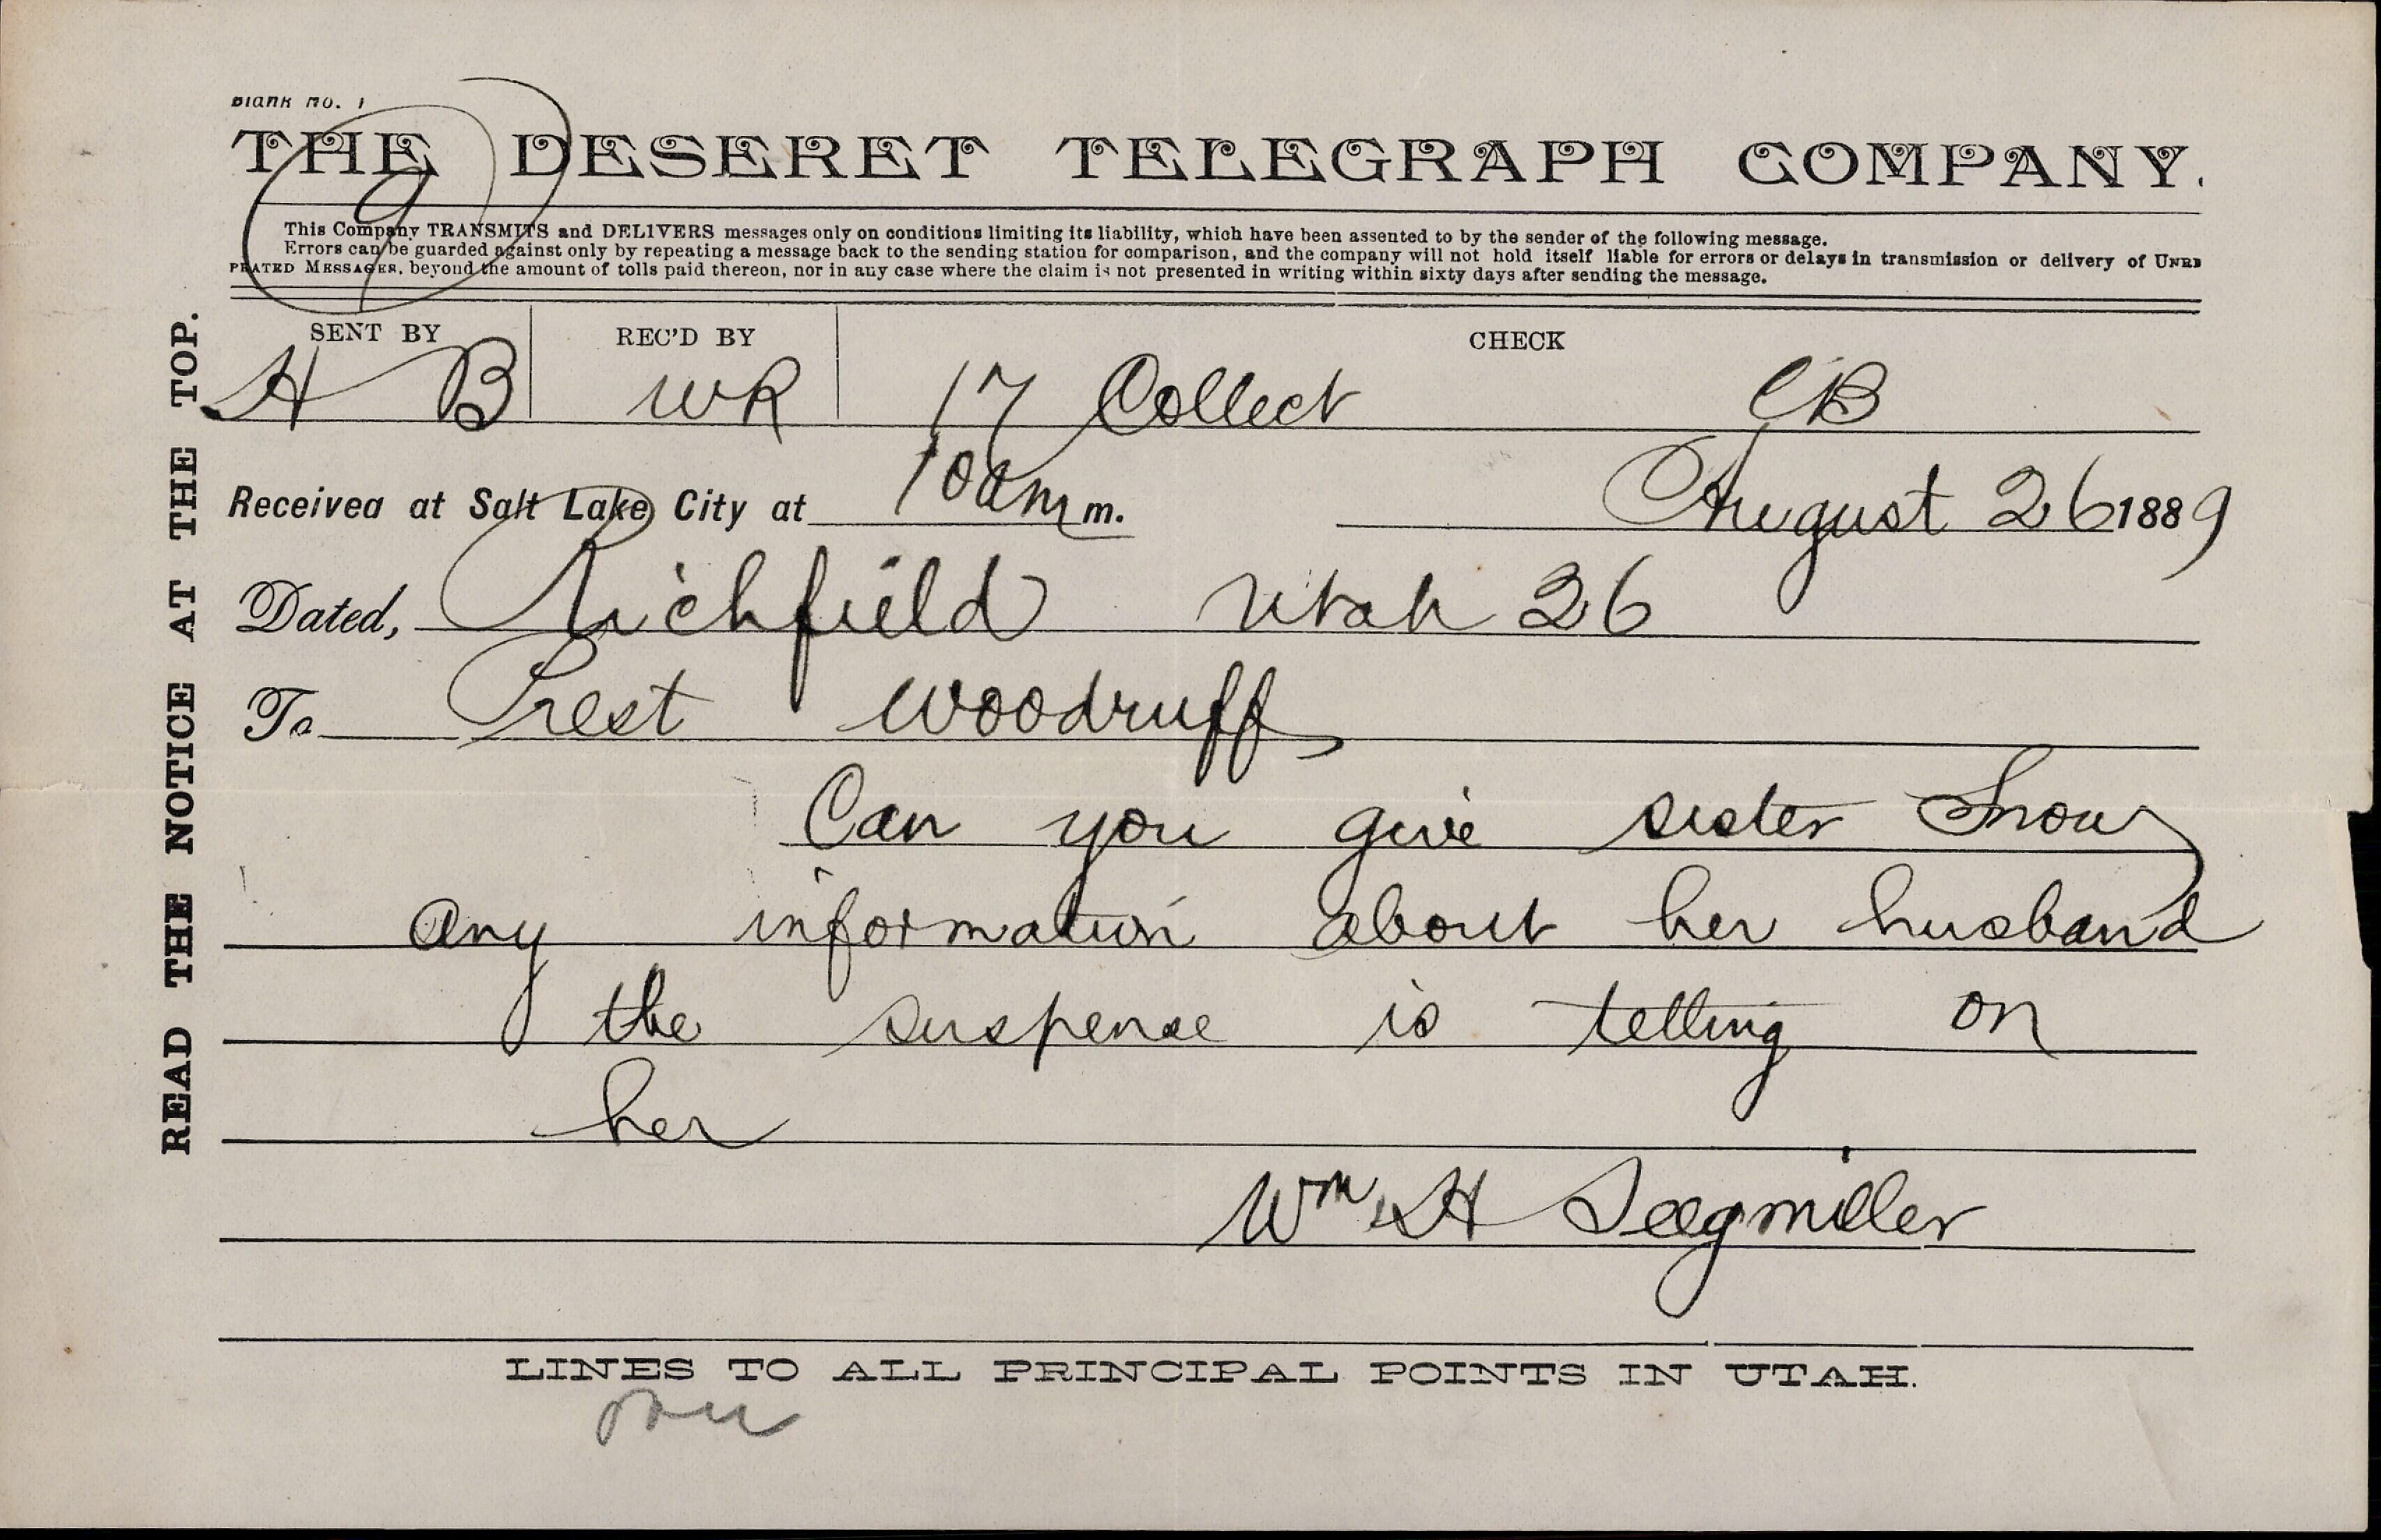 Blank No. 1
9
THE DESERET TELEGRAPH COMPANY.
This Company TRANSMITS and DELIVERS messages only on conditions limiting its liability, which have been assented to by the sender of the following message.
Errors can be guarded against only by repeating a message back to the sending station for comparison, and the company will not hold itself liable for errors or delays in transmission or delivery of UNRE
PEATED MESSAGES, beyond the amount of tolls paid thereon, nor in any case where the claim is not presented in writing within sixty days after sending the message.
READ THE NOTICE AT THE TOP.
SENT BY REC'D BY CHECK
H B WR 17 Collect CB
Received at Salt Lake City at 10am m. August 26 1889
Dated, Richfield Utah 26
To Prest Woodruff,
Can you give sister Snow
any information about her husband
the suspense is telling on
her
Wm H Seegmiller
LINES TO ALL PRINCIPAL POINTS IN UTAH.